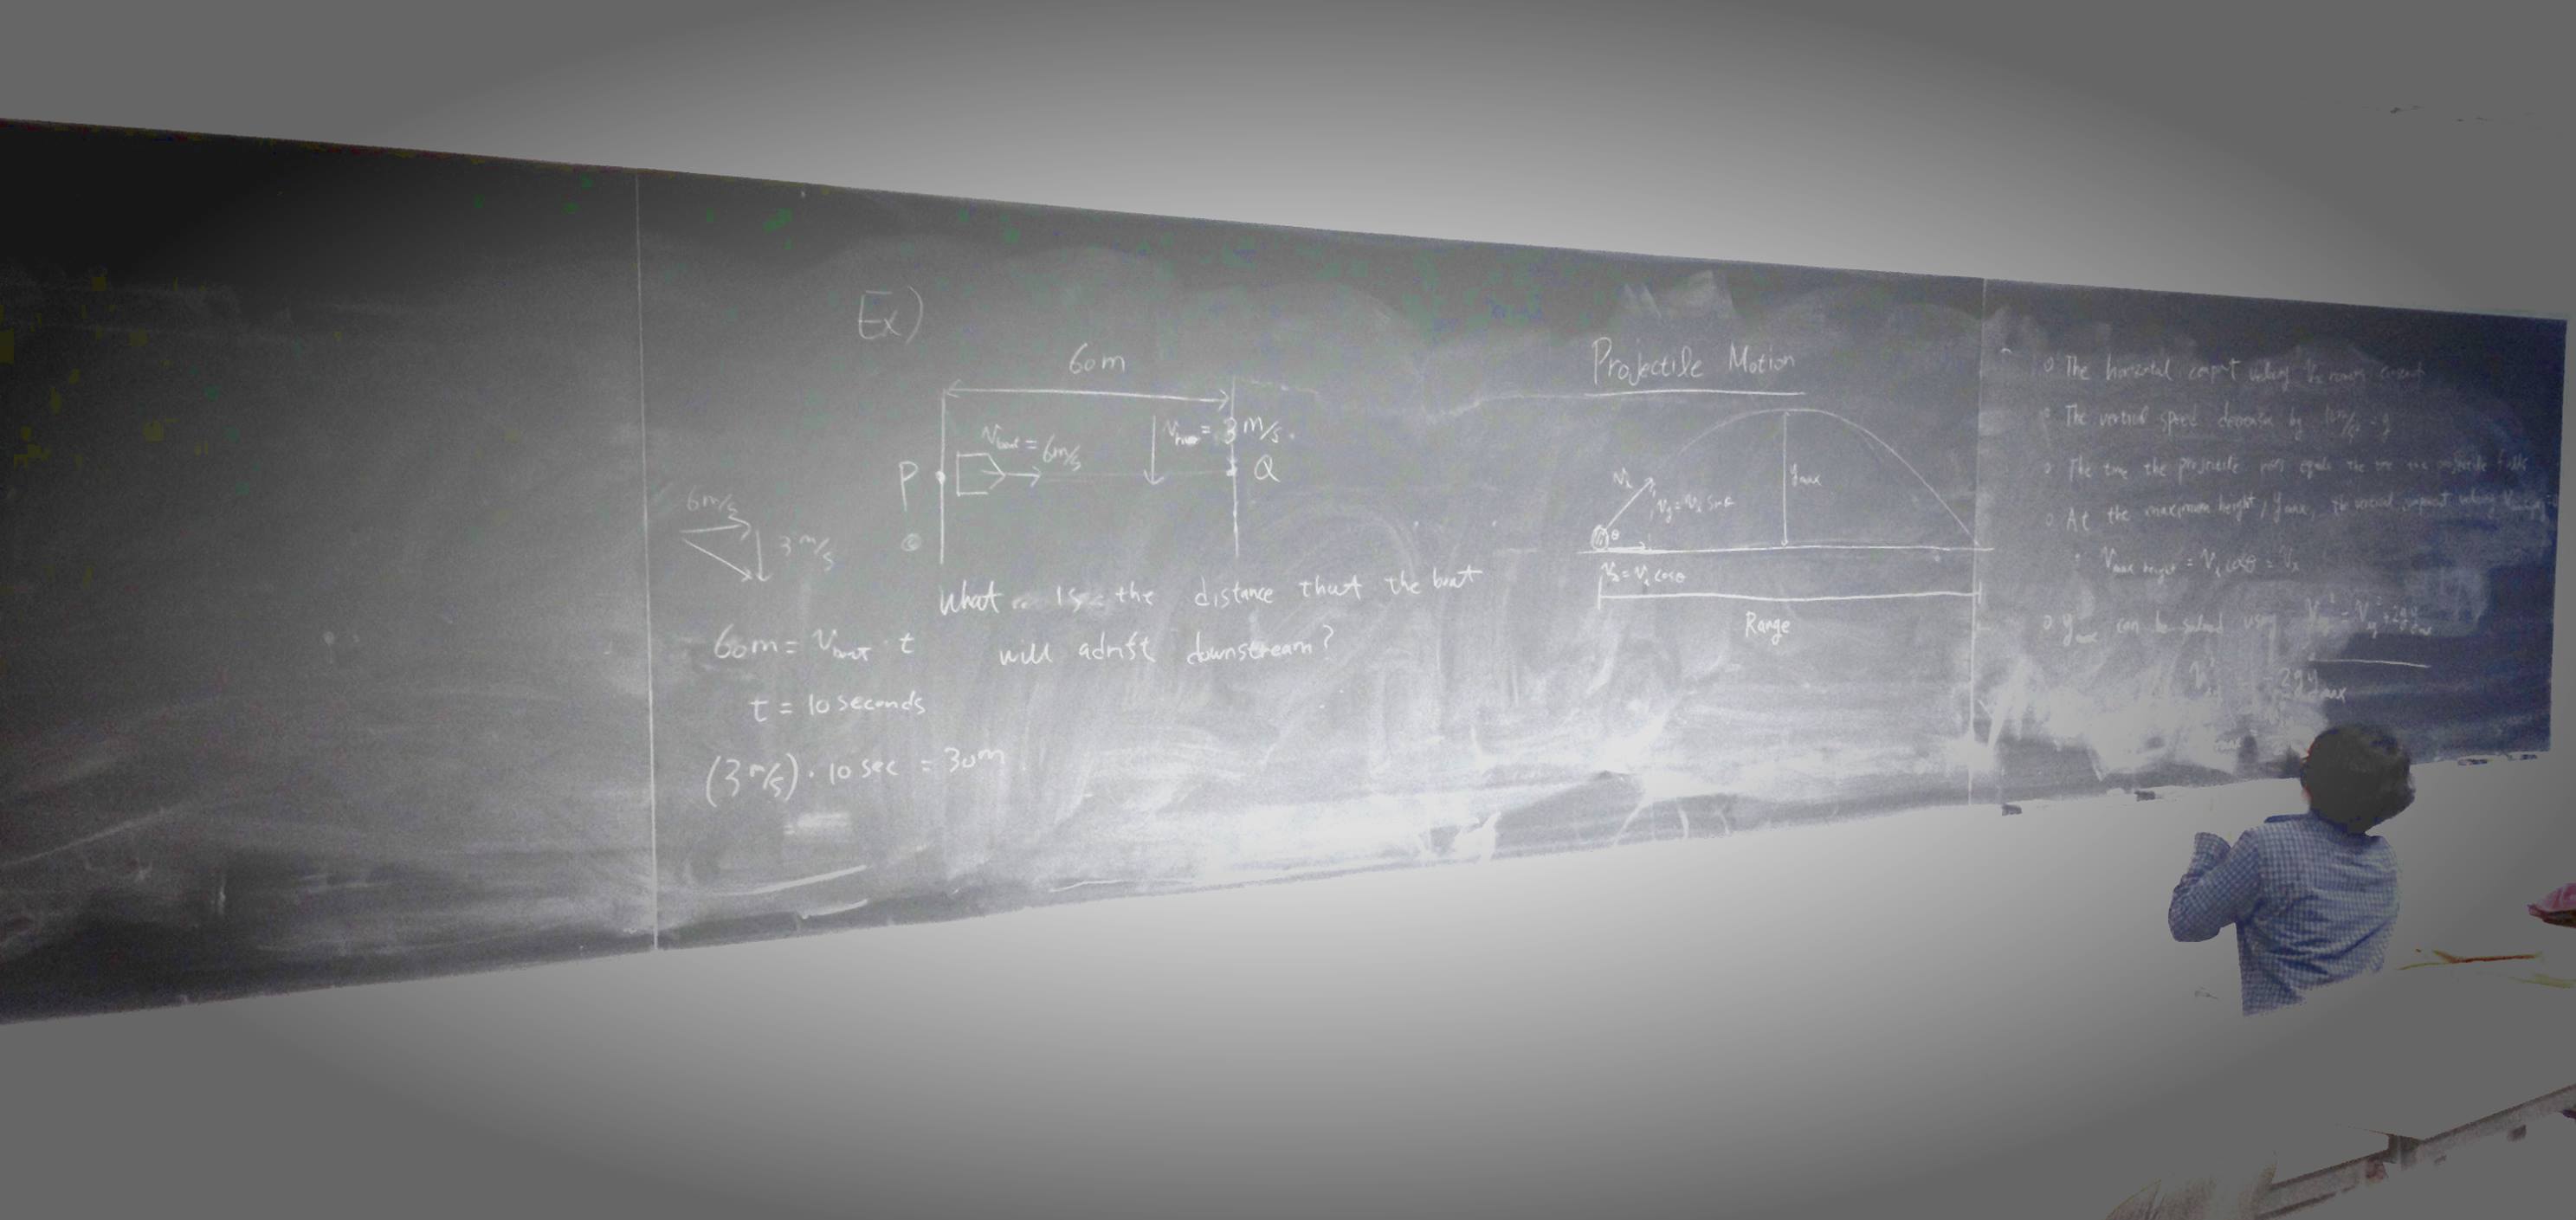 Ex)
60m
V boat = 6m/s
V = 3 m/s.
P
Q
6m/s
3 m/s
What is the distance that the boat
will adrift downstream?
60m = V boat · t
t = 10 seconds
(3 m/s) · 10 sec = 30m
Projectile Motion
Vi
Vy = Vi sinθ
ymax
θ
Vx = Vi cosθ
Range
o The horizontal velocity Vx
o The vertical speed by = g
o The time the projectile equals the the projectile falls
o At the maximum height, ymax, the vertical velocity
Vmax height = Vi cosθ = Vx
o ymax can be solved using
2gymax